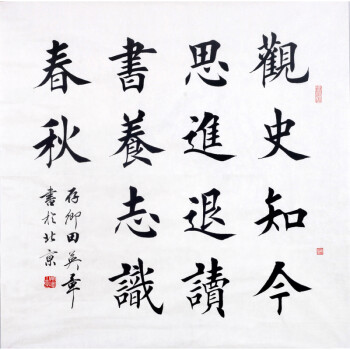 觀史知今
思進退讀
書養志識
春秋
存卿田英章
書於北京